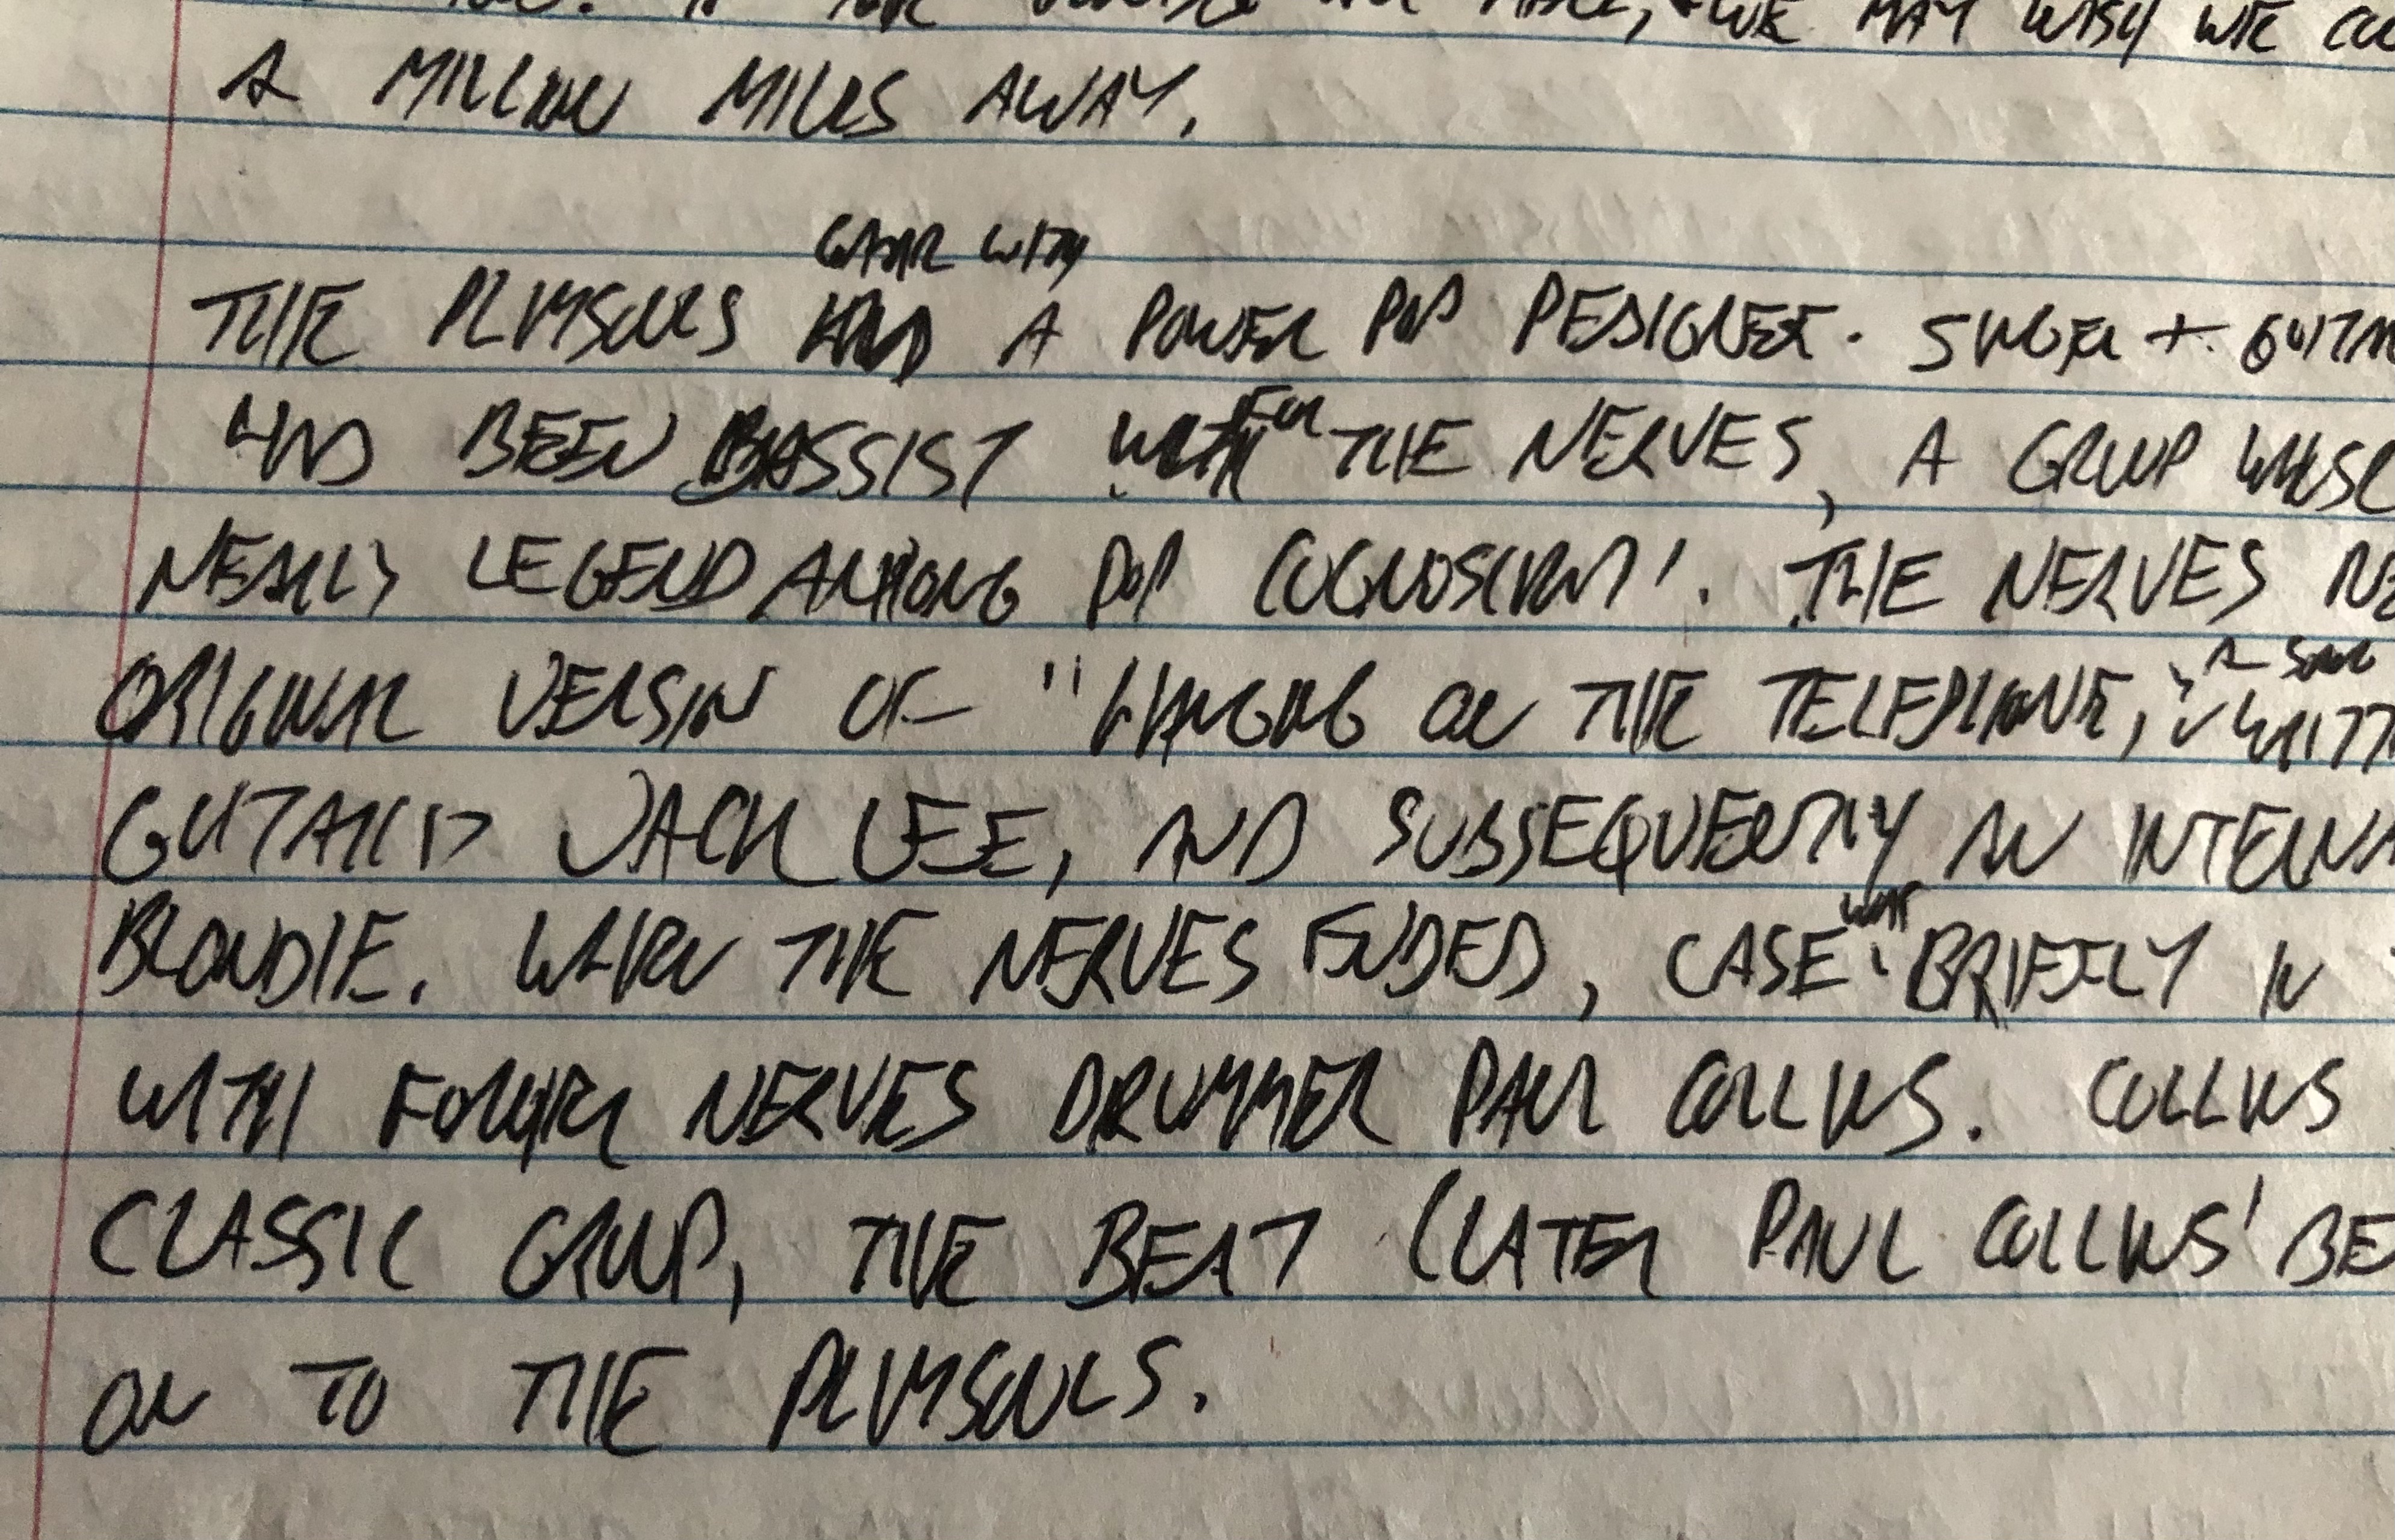 WE MAY WISH WE
A MILLION MILES AWAY.
CAME WITH
THE PLIMSOULS HAD A POWER POP PEDIGREE. SINGER + GUITAR
HAD BEEN BASSIST WITH FOR THE NERVES, A GROUP WHOSE
NEARLY LEGEND AMONG POP COGNOSCENTI. THE NERVES
ORIGINAL VERSION OF "HANGING ON THE TELEPHONE," A SONG
GUITARIST JACK LEE, AND SUBSEQUENTLY AN INTERNA
BLONDIE. WHEN THE NERVES ENDED, CASE WAS BRIEFLY IN
WITH FORMER NERVES DRUMMER PAUL COLLINS. COLLINS
CLASSIC GROUP, THE BEAT (LATER PAUL COLLINS' BE
ON TO THE PLIMSOULS.